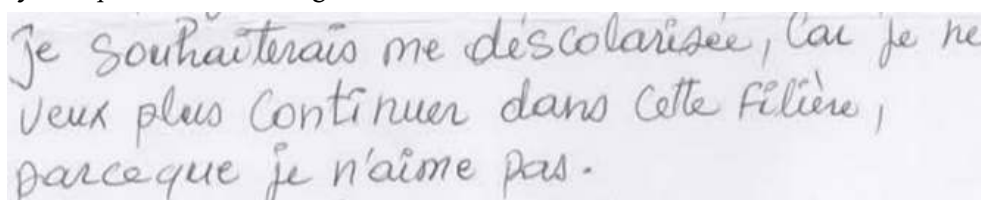 Je souhaiterais me déscolarisée, Car je ne
veux plus continuer dans cette filière,
parceque je n'aime pas.